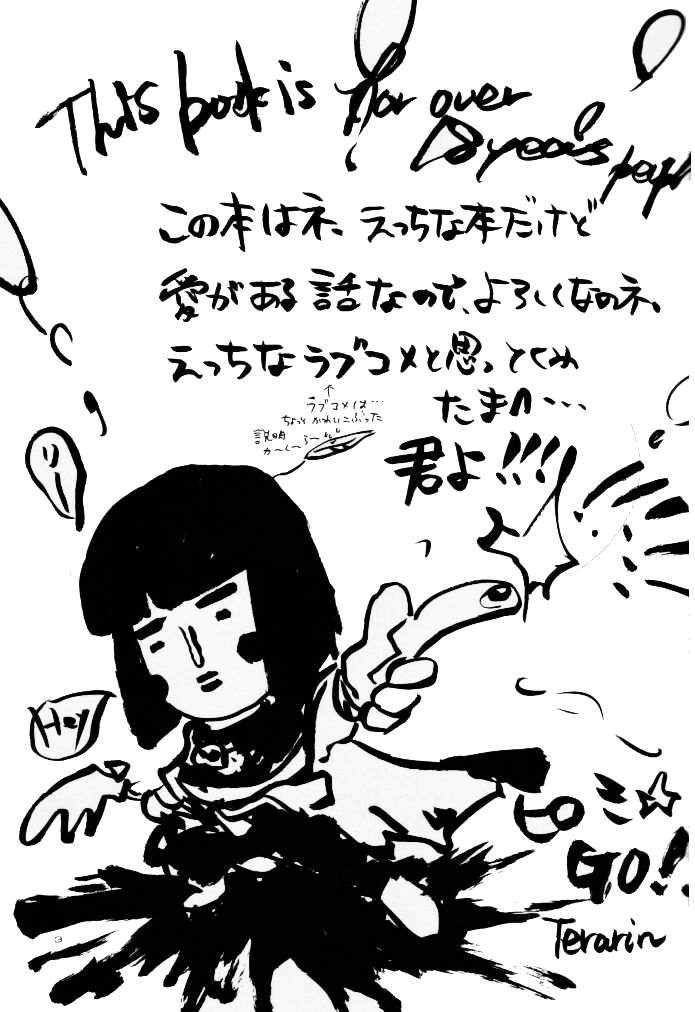 This book is for over
18 years people
この本はネ、えっちな本だけど
愛がある話なので、よろしくなのネ。
えっちなラブコメと思ってくれ
たまへ…
↑
ラブコメは…
ちょっとかわいこぶった
説明
か〜く〜ろ〜
君よ!!!
リー
Hey
ピロミ☆
GO!!
Terarin
3